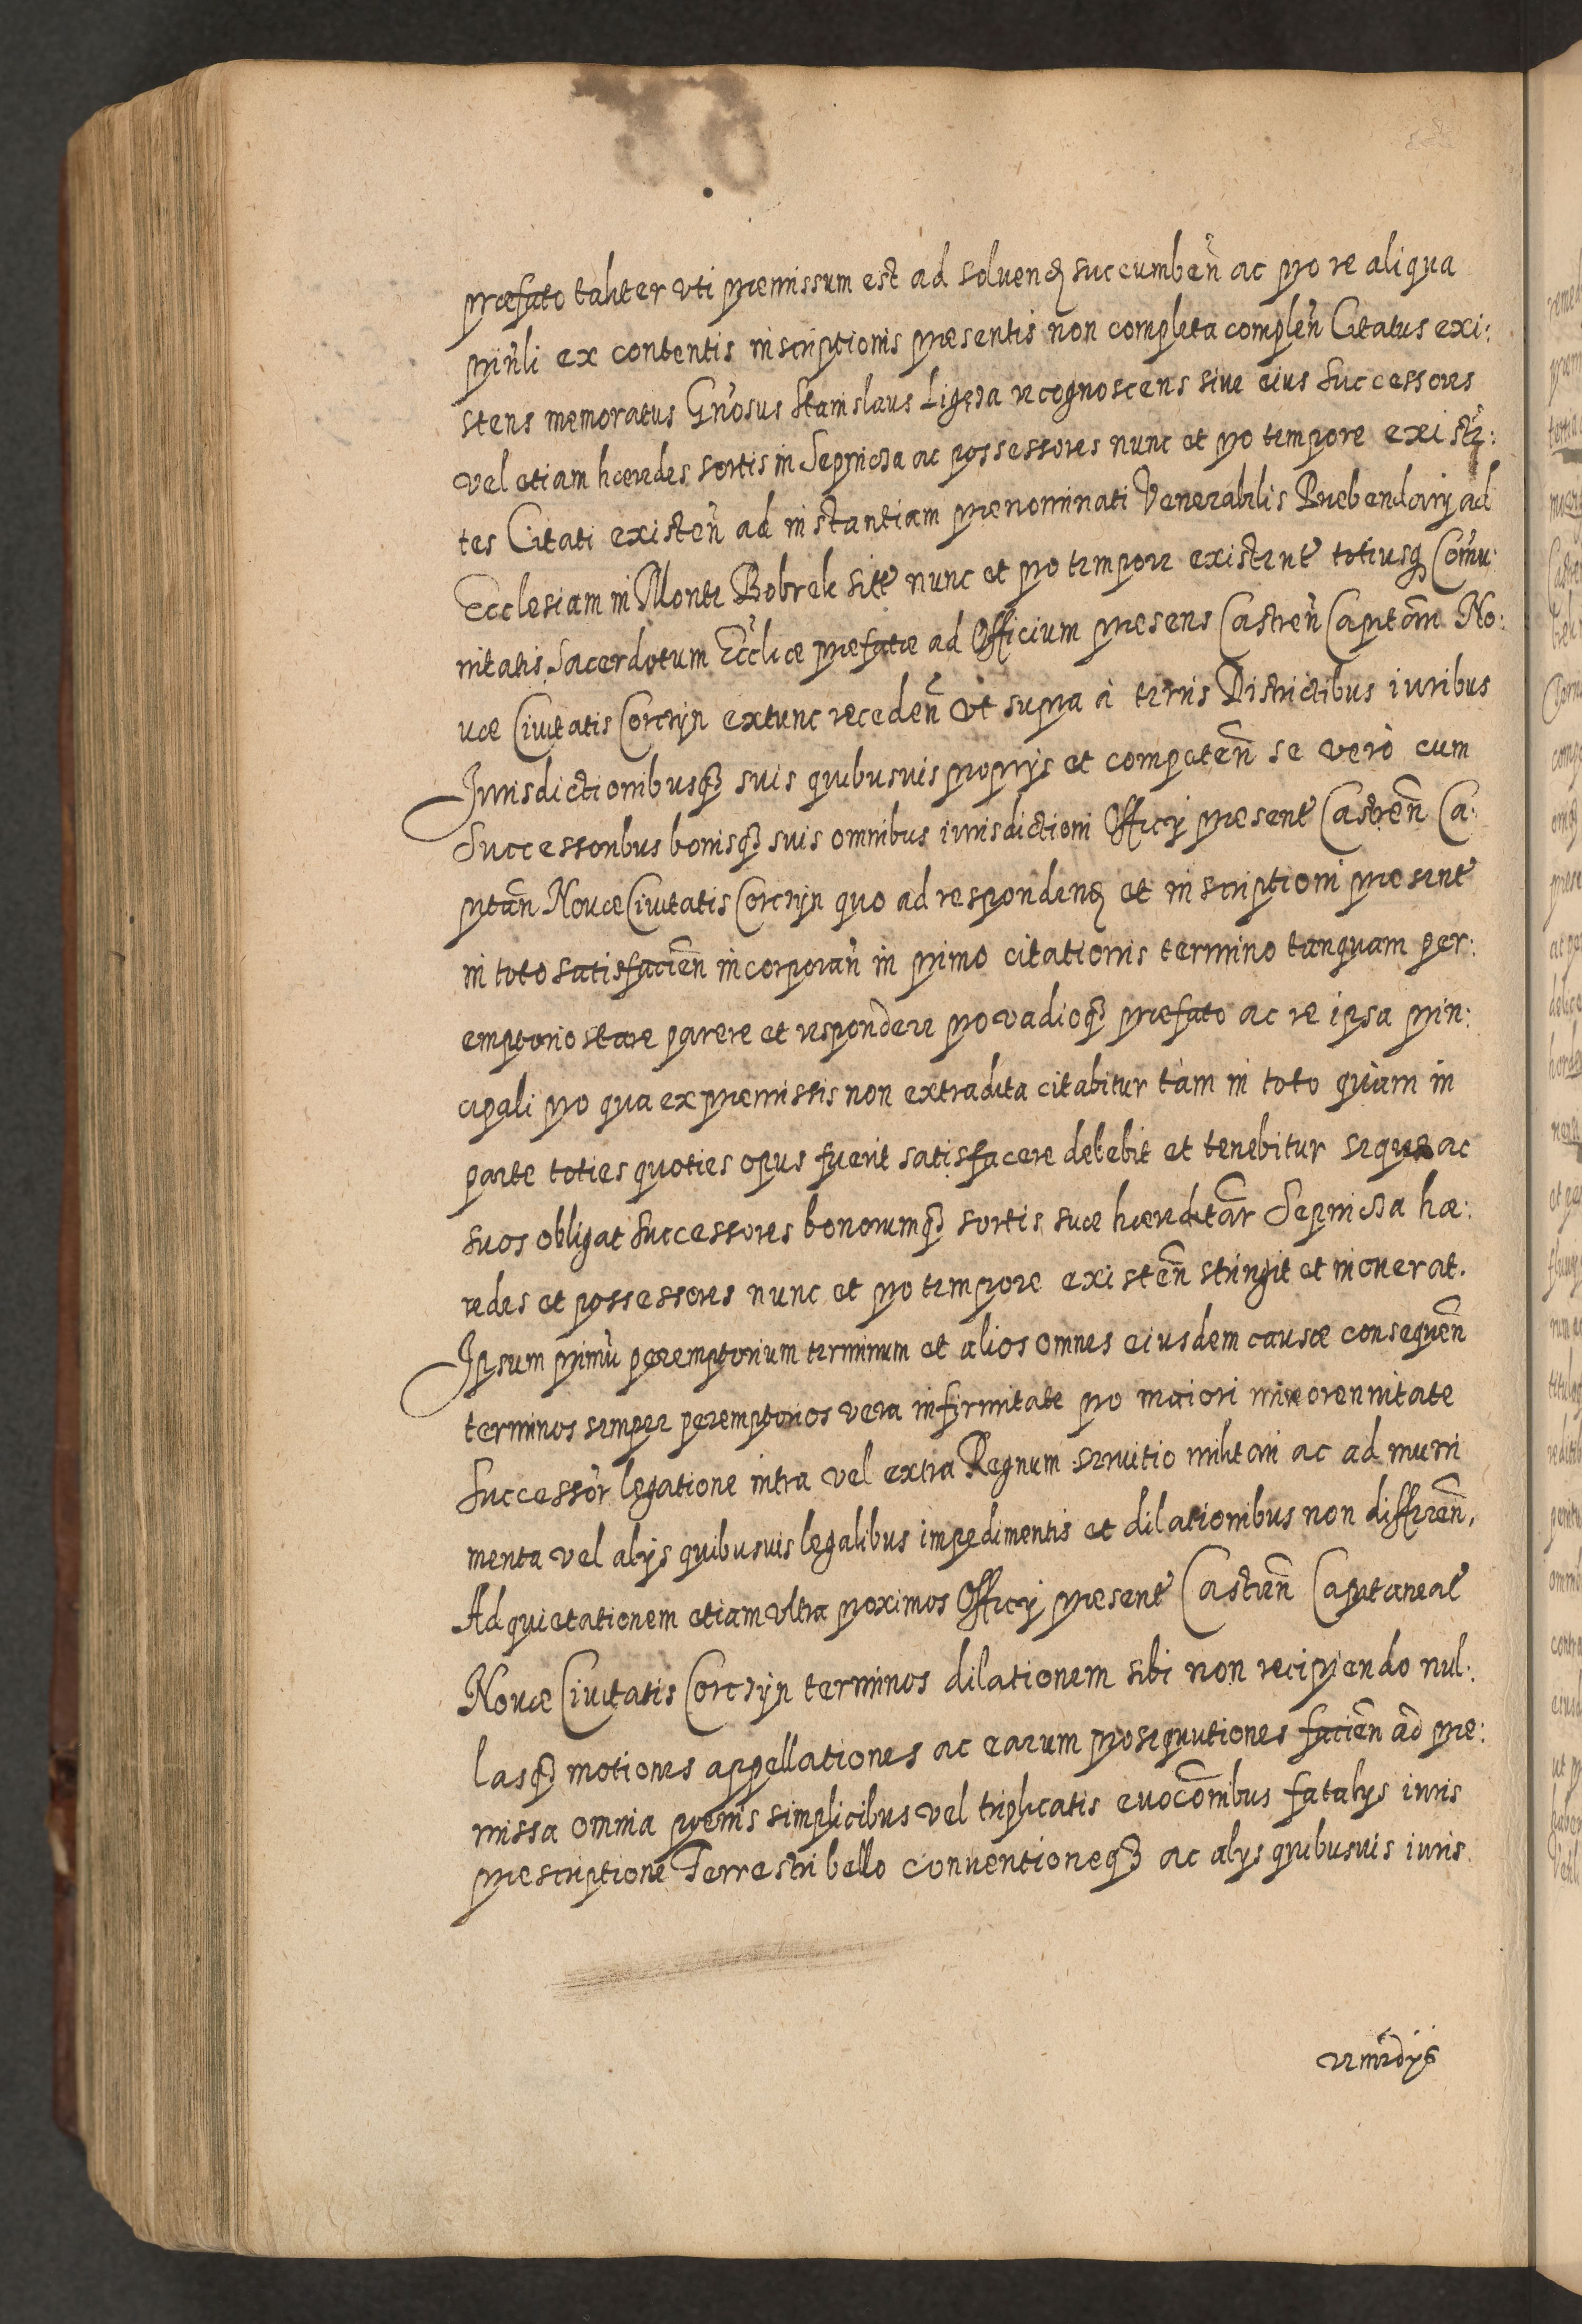 præfato taliter vti præmissum est ad soluenꝭ succumbeñ ac pro re aliqua
priñli ex contentis inscriptionis præsentis non completa compleñ Citatus exi:
stens memoratus Gñosus Stanislaus Ligęza recognoscens siue eius Successores
vel etiam hæredes sortis in Sepnicza ac possessores nunc et pro tempore existē:
tes Citati existeñ ad instantiam prænominati Venerabilis Præbendarij ad
Ecclesiam in Monte Bobrek sitæ nunc et pro tempore existent totiusqȝ Com̃u:
nitatis Sacerdotum Eccl̃iæ præfatæ ad Officium præsens Castreñ Capitañ No:
uæ Ciuitatis Corczyn extunc recedeñ vt supra à terris Districtibus iuribus
Jurisdictionibusqȝ suis quibusuis proprijs et competeñ se verò cum
Successoribus bonisqȝ suis omnibus iurisdictioni Officij præsent Castreñ Ca:
pitañ Nouæ Ciuitatis Corczyn quo ad respondenꝭ et inscriptioni præsent
in toto satisfacieñ incorporañ in primo citationis termino tanquam per:
emptorio stare parere et respondere pro vadioqȝ præfato ac re ipsa prin:
cipali pro qua ex præmissis non extradita citabitur tàm in toto quàm in
parte toties quoties opus fuerit satisfacere debebit et tenebitur seque ac
suos obligat Successores bonorumqȝ sortis suæ hæreditar̃ Sepnicza hæ:
redes et possessores nunc et pro tempore existeñ stringit et inonerat.
Ipsum primũ peremptorium terminum et alios omnes eiusdem causæ consequeñ
terminos semper peremptorios vera infirmitate pro maiori minorennitate
Successor̃ legatione intra vel extra Regnum seruitio militari ac ad muni
menta vel alijs quibusuis legalibus impedimentis et dilationibus non differeñ,
Ad quietationem etiam vltra proximos Officij præsent Castreñ Capitaneat
Nouæ Ciuitatis Corczyn terminos dilationem sibi non recipiendo nul:
lasqȝ motiones appellationes ac earum prosequutiones facieñ ad præ:
missa omnia pœnis simplicibus vel triplicatis euocõnibus fatalijs iuris
præscriptione Terrestri bello conuentioneqȝ ac alijs quibusuis iuris
remedijs